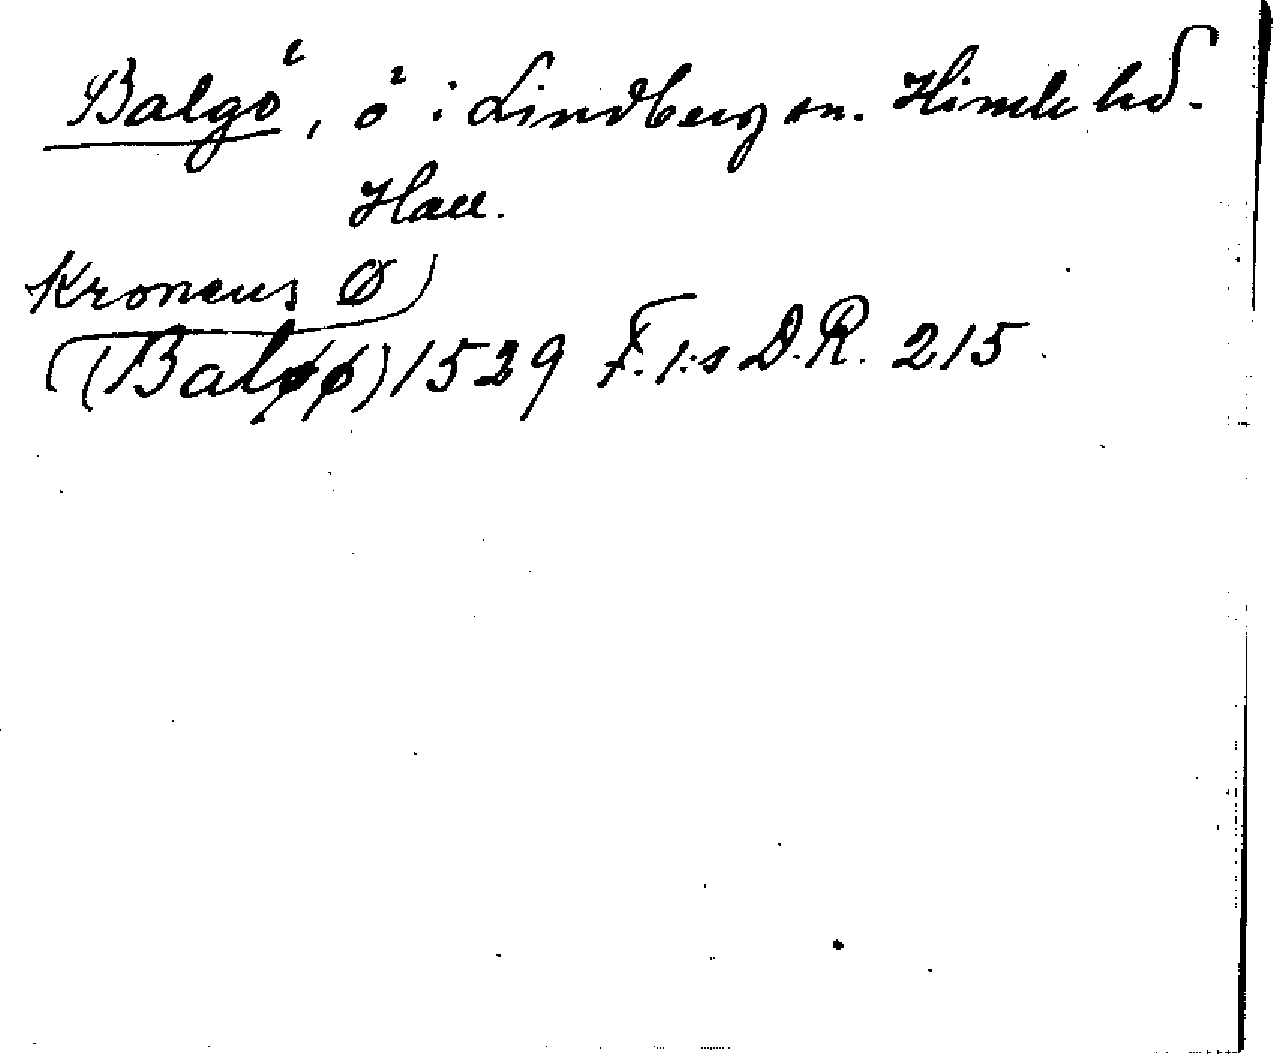 Balgö, ö i Lindberg sn. Himle hd.
Hall.
Kronens Ø)
((Baløø) 1529 F. I:s D.R. 215.